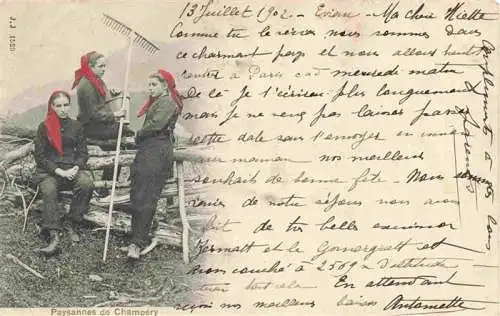 J. J. 1639
13 Juillet 1902 - Evian - Ma chère Miette
Comme tu le vois nous sommes dans
ce charmant pays et nous allons
rentrer à Paris mercredi matin
de là je t'écrirai plus longuement
mais je ne veux pas laisser passer
cette date sans t'envoyer
maman nos meilleurs
souhaits de bonne fête - Nous
de notre séjour nous avons
fait de très belles excursions
Zermatt et le Gornergratt et
avons couché à 2569 m d'altitude
tout cela. En attendant
reçois nos meilleurs baisers Antoinette
Paysannes de Champéry